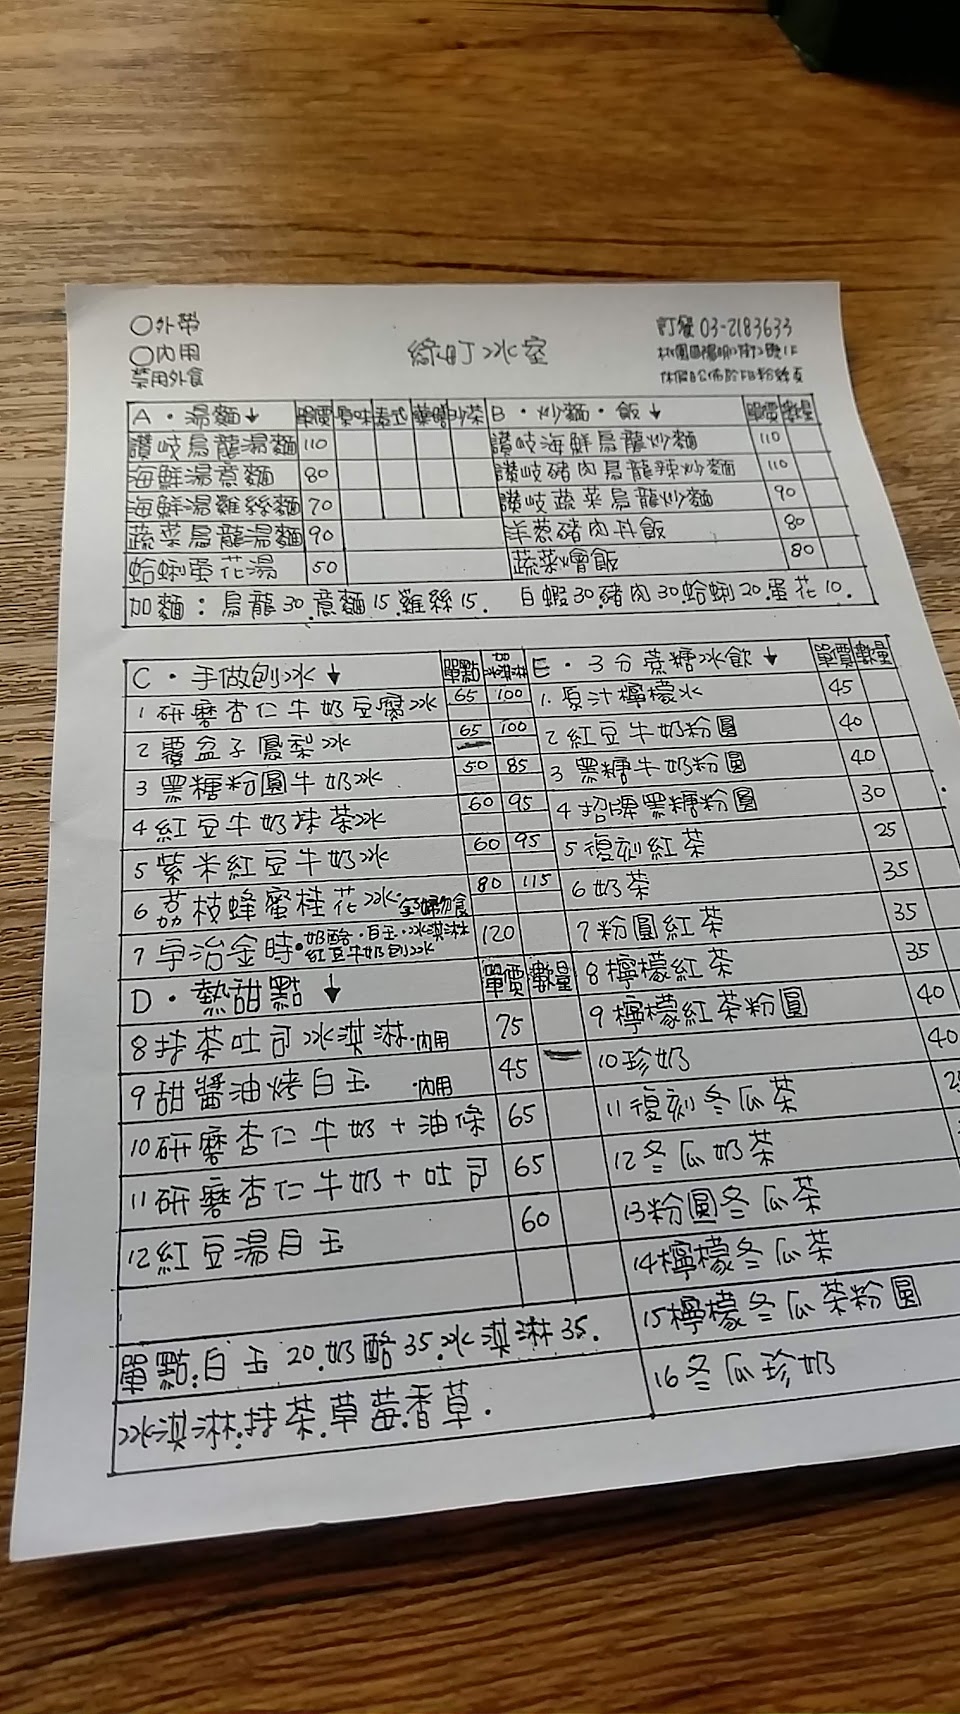 ○外帶
○內用
禁用外食
綠町冰室
訂餐 03-2183633
休假日公佈於FB粉絲頁
A・湯麵↓ 單價 原味 泰式 藥膳 沙茶
讚岐烏龍湯麵 110
海鮮湯意麵 80
海鮮湯雞絲麵 70
蔬菜烏龍湯麵 90
蛤蜊蛋花湯 50
B・炒麵・飯↓ 單價 數量
讚岐海鮮烏龍炒麵 110
讚岐豬肉烏龍辣炒麵 110
讚岐蔬菜烏龍炒麵 90
洋蔥豬肉丼飯 80
蔬菜燴飯 80
加麵：烏龍30.意麵15.雞絲15. 白蝦30.豬肉30.蛤蜊20.蛋花10.
C・手做刨冰↓ 單點 加冰淇淋
1 研磨杏仁牛奶豆腐冰 65 100
2 覆盆子鳳梨冰 65 100
3 黑糖粉圓牛奶冰 50 85
4 紅豆牛奶抹茶冰 60 95
5 紫米紅豆牛奶冰 60 95
6 荔枝蜂蜜桂花冰・孕婦勿食 80 115
7 宇治金時・奶酪・白玉・冰淇淋 紅豆牛奶刨冰 120
D・熱甜點↓ 單價 數量
8 抹茶吐司冰淇淋・內用 75
9 甜醬油烤白玉 ・內用 45
10 研磨杏仁牛奶+油條 65
11 研磨杏仁牛奶+吐司 65
12 紅豆湯白玉 60
單點:白玉20.奶酪35.冰淇淋35.
冰淇淋:抹茶.草莓.香草.
E・3分蔗糖冰飲↓ 單價 數量
1. 原汁檸檬冰 45
2 紅豆牛奶粉圓 40
3 黑糖牛奶粉圓 40
4 招牌黑糖粉圓 30
5 復刻紅茶 25
6 奶茶 35
7 粉圓紅茶 35
8 檸檬紅茶 35
9 檸檬紅茶粉圓 40
10 珍奶 40
11 復刻冬瓜茶
12 冬瓜奶茶
13 粉圓冬瓜茶
14 檸檬冬瓜茶
15 檸檬冬瓜茶粉圓
16 冬瓜珍奶